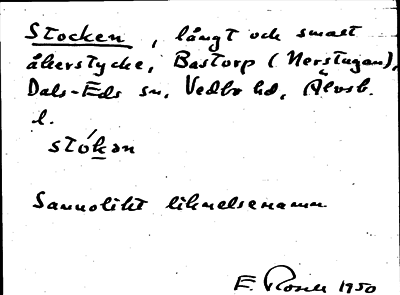 Stocken, långt och smalt
åkerstycke, Bastorp (Nerstugan),
Dals-Eds sn, Vedbo hd, Älvsb.
l.
stókən
Sannolikt liknelsenamn
E. Rosell 1950